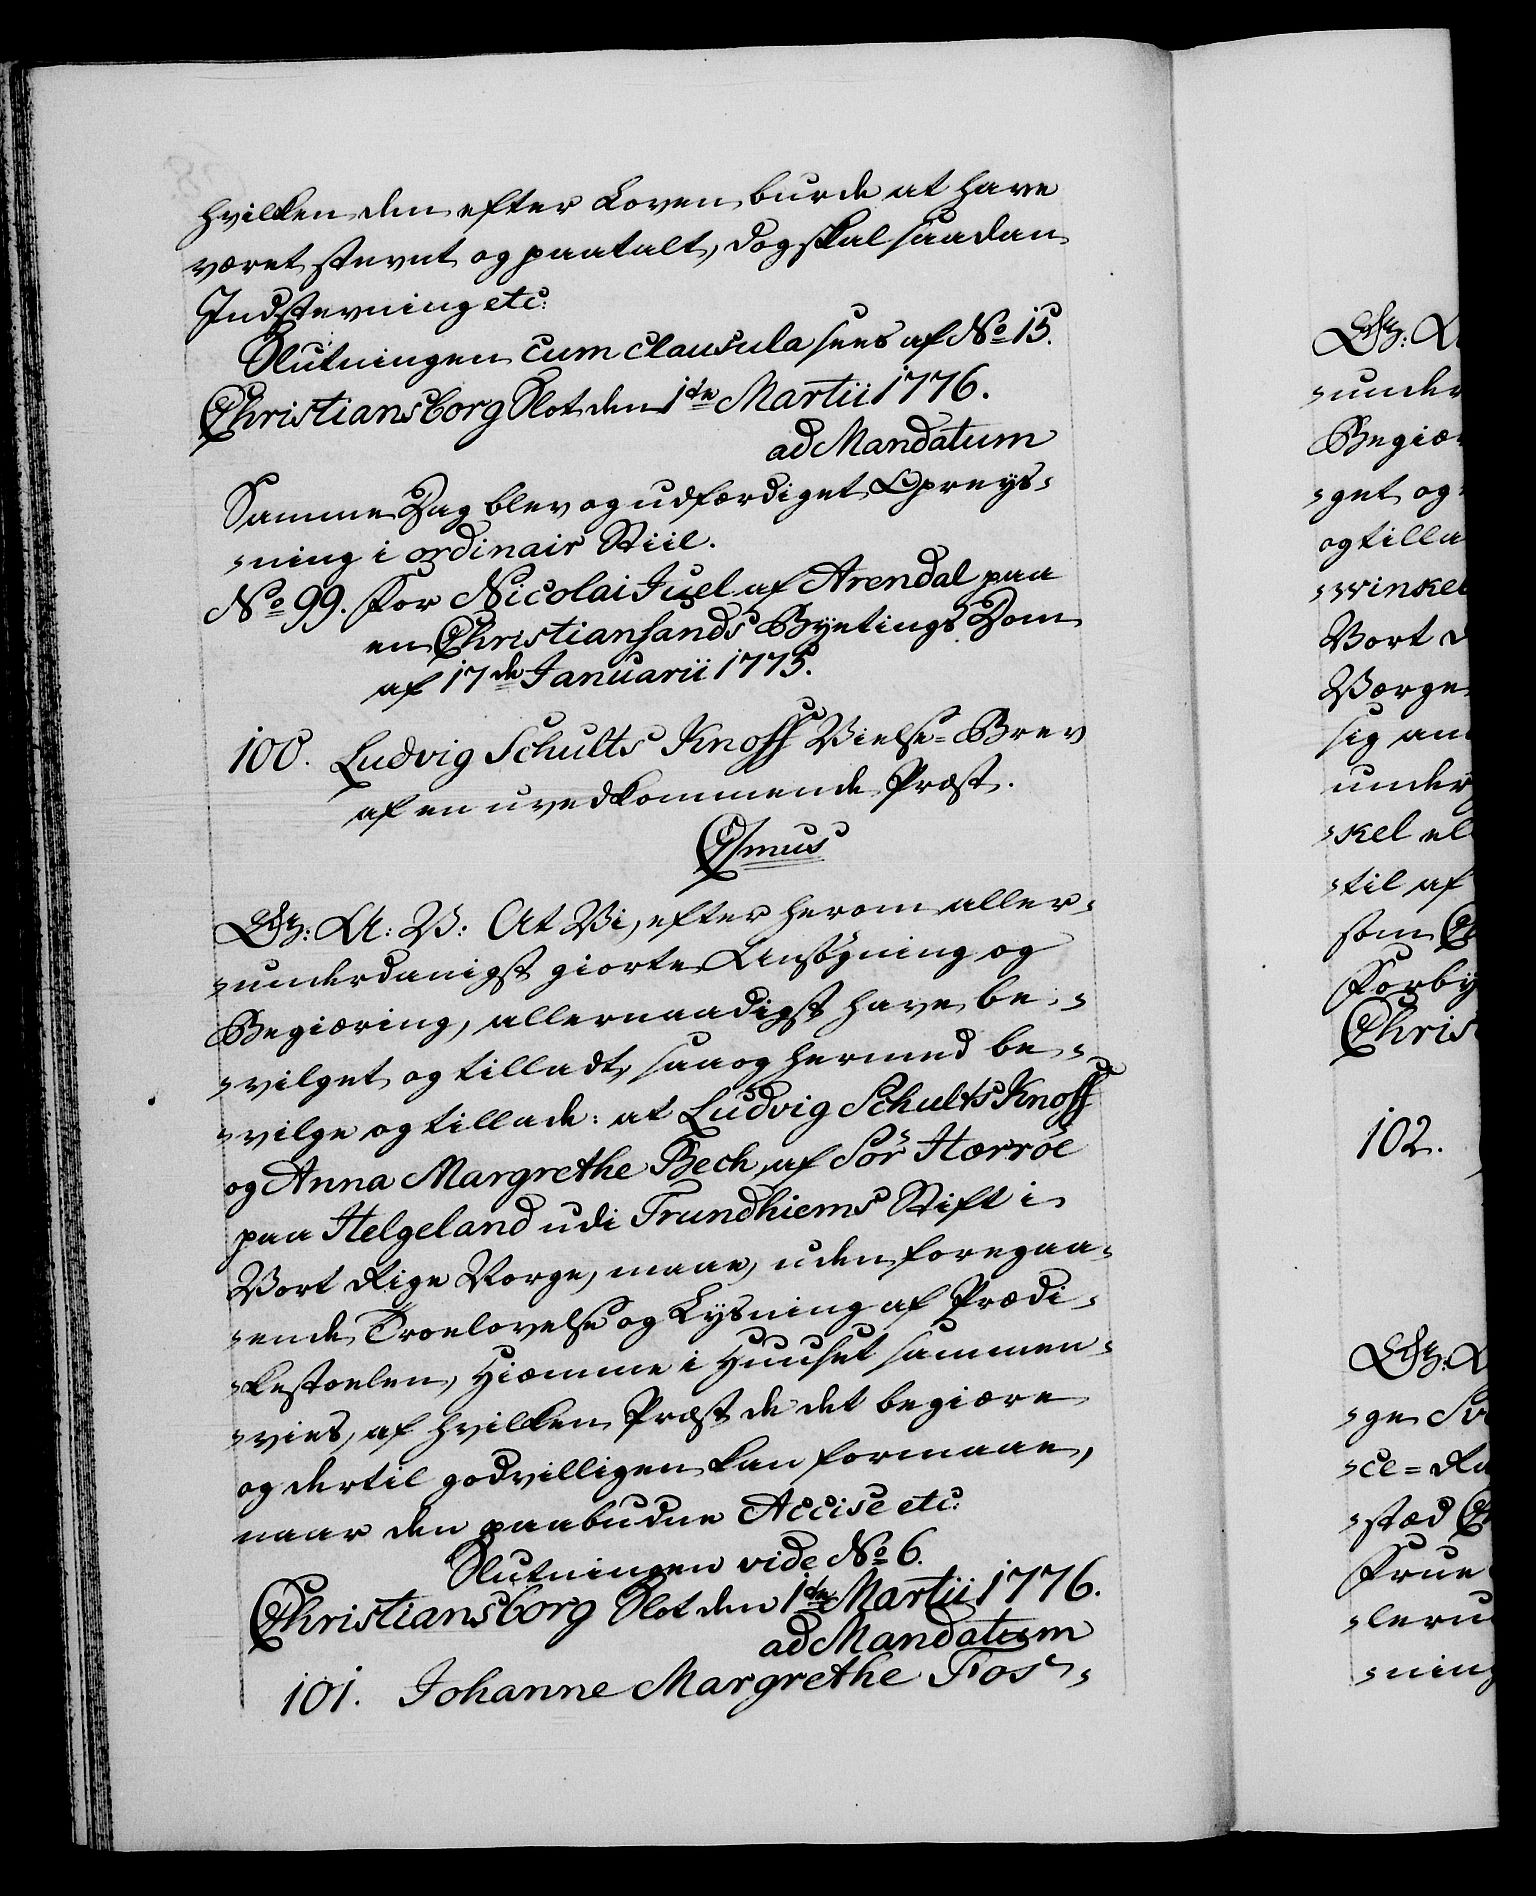 hvilken den efter Loven burde at have
været stevnt og paatalt, dog skal saadan
Indstevning etc:
Slutningen cum clausula sees af No 15.
Christiansborg Slot den 1ste Martii 1776.
ad Mandatum
Samme Dag blev og udfærdiget Opreys-
-ning i ordinair Stiil.
No 99. For Nicolai Juel af Arendal paa
en Christiansands Byetings Dom
af 17de Januarii 1775.
100. Ludvig Schults Knoff Vielse-Brev
af en uvedkommende Præst.
C7mus
G: A: V: At Vi, efter herom aller-
-underdanigst giorte Ansøgning og
Begiæring, allernaadigst have be-
-vilget og tilladt, saa og hermed be-
-vilge og tillade: at Ludvig Schults Knoff
og Anna Margrethe Bech af Sör Herröe
paa Helgeland udi Trundhiems Stift i
Vort Rige Norge, maae, uden foregaa-
-ende Troelovelse og Lysning af Prædi-
-kestoelen, hiemme i Huuset sammen-
-vies, af hvilken Præst de det begiære
og dertil godvilligen kan formaae,
naar den paabudne Accise etc:
Slutningen vide No 6.
Christiansborg Slot den 1ste Martii 1776.
ad Mandatum
101. Johanne Margrethe Fos-
-under
Begiæ
-get og
og tilla
-winkel
Vort
Norge
sig an
under
-kel el
-til af
som
Forby
Chris
102.
-ge
-ce=
-stæd
Frue
-leru
-ning